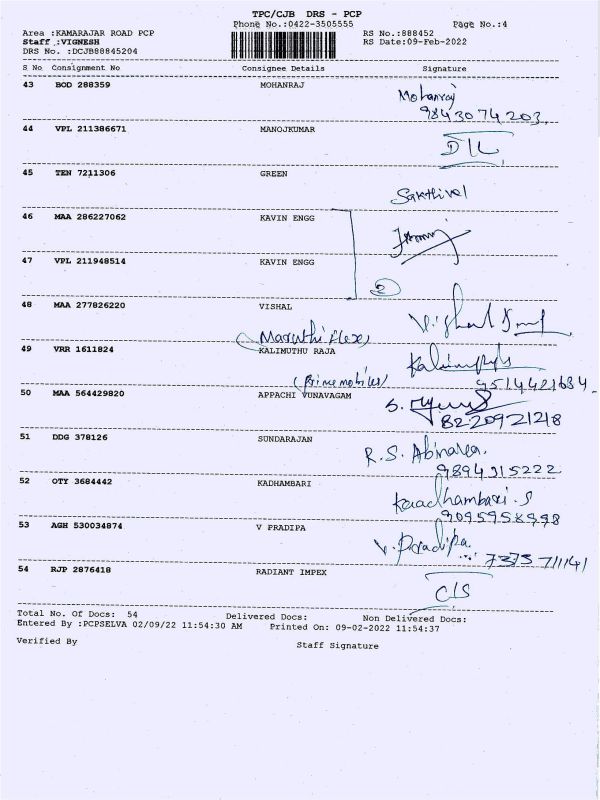 TPC/CJB DRS - PCP
Phone No.:0422-3505555 Page No.:4
Area :KAMARAJAR ROAD PCP RS No.:888452
Staff :VIGNESH RS Date:09-Feb-2022
DRS No. :DCJB88845204
S No Consignment No Consignee Details Signature
43 BOD 288359 MOHANRAJ Mohanraj
9843074203.
44 VPL 211386671 MANOJKUMAR
45 TEN 7211306 GREEN Sakthivel
46 MAA 286227062 KAVIN ENGG
47 VPL 211948514 KAVIN ENGG
2
48 MAA 277826220 VISHAL Vishal
Maruthi flex
49 VRR 1611824 KALIMUTHU RAJA
(Prime mobiles) 9514421684
50 MAA 564429820 APPACHI VUNAVAGAM
8220921218
51 DDG 378126 SUNDARAJAN R.S. Abinaya.
9894315222
52 OTY 3684442 KADHAMBARI Kaadhambari.S
9095958998
53 AGH 530034874 V PRADIPA V. Pradipa
7373711141
54 RJP 2876418 RADIANT IMPEX C/S
Total No. Of Docs: 54 Delivered Docs: Non Delivered Docs:
Entered By :PCPSELVA 02/09/22 11:54:30 AM Printed On: 09-02-2022 11:54:37
Verified By Staff Signature